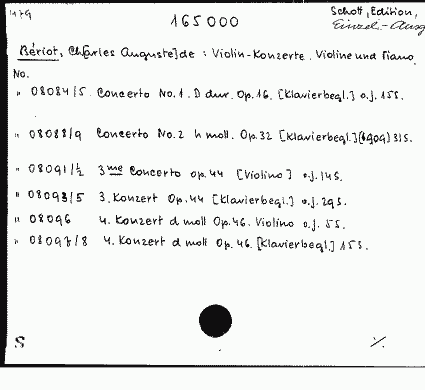 1479
165000
Schott, Edition,
Einzel-Ausg
Bériot, Ch[arles Auguste] de : Violin-Konzerte. Violine und Piano.
No.
" 08084/5. Concerto No. 1. D dur. Op. 16. [Klavierbegl.] o.J. 15 S.
" 08088/9 Concerto No. 2 h moll. Op. 32 [Klavierbegl.] (1909) 31 S.
" 08091/½ 3me Concerto op. 44 [Violino] o.J. 14 S.
" 08093/5 3. Konzert Op. 44 [Klavierbegl.] o.J. 29 S.
" 08096 4. Konzert d moll Op. 46. Violino o.J. 5 S.
" 08097/8 4. Konzert d moll Op. 46. [Klavierbegl.] 15 S.
S